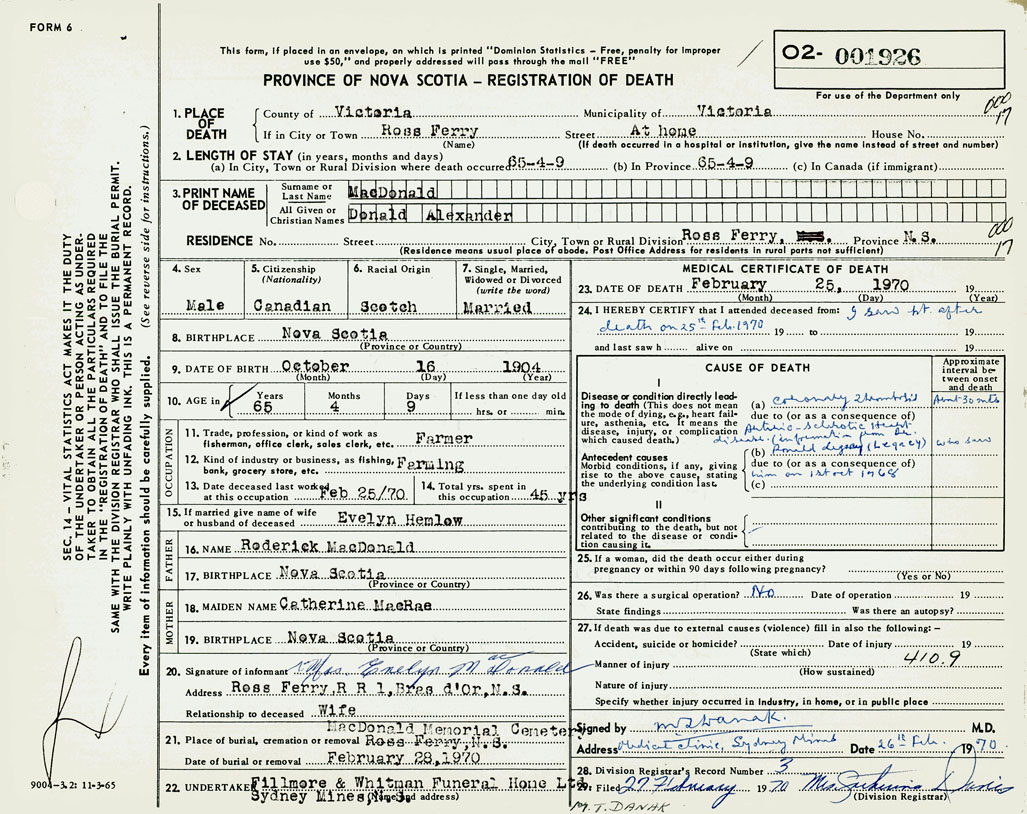 FORM 6
This form, if placed in an envelope, on which is printed "Dominion Statistics – Free, penalty for improper
use $50," and properly addressed will pass through the mail "FREE"
PROVINCE OF NOVA SCOTIA – REGISTRATION OF DEATH
O2- 001926
For use of the Department only
000
17
1. PLACE OF DEATH
County of Victoria Municipality of Victoria
If in City or Town Ross Ferry Street At home House No.
(Name) (If death occurred in a hospital or institution, give the name instead of street and number)
2. LENGTH OF STAY (in years, months and days)
(a) In City, Town or Rural Division where death occurred 65-4-9 (b) In Province 65-4-9 (c) In Canada (if immigrant)
3. PRINT NAME OF DECEASED
Surname or Last Name MacDonald
All Given or Christian Names Donald Alexander
000
17
RESIDENCE No. Street City, Town or Rural Division Ross Ferry, Province N.S.
(Residence means usual place of abode. Post Office Address for residents in rural parts not sufficient)
4. Sex
Male
5. Citizenship
(Nationality)
Canadian
6. Racial Origin
Scotch
7. Single, Married,
Widowed or Divorced
(write the word)
Married
8. BIRTHPLACE Nova Scotia
(Province or Country)
9. DATE OF BIRTH October 16 1904
(Month) (Day) (Year)
10. AGE in
Years 65
Months 4
Days 9
If less than one day old
hrs. or min.
OCCUPATION
11. Trade, profession, or kind of work as
fisherman, office clerk, sales clerk, etc. Farmer
12. Kind of industry or business, as fishing,
bank, grocery store, etc. Farming
13. Date deceased last worked
at this occupation Feb 25/70
14. Total yrs. spent in
this occupation 45 yrs
15. If married give name of wife
or husband of deceased Evelyn Hemlow
FATHER
16. NAME Roderick MacDonald
17. BIRTHPLACE Nova Scotia
(Province or Country)
MOTHER
18. MAIDEN NAME Catherine MacRae
19. BIRTHPLACE Nova Scotia
(Province or Country)
20. Signature of informant Mrs. Evelyn MacDonald
Address Ross Ferry,R R 1,Bras d'Or,N.S.
Relationship to deceased Wife
MacDonald Memorial Cemetery
21. Place of burial, cremation or removal Ross Ferry,N.S.
Date of burial or removal February 28,1970
22. UNDERTAKER Fillmore & Whitman Funeral Home Ltd
Sydney Mines, N.S.
(Name and address)
MEDICAL CERTIFICATE OF DEATH
23. DATE OF DEATH February 25, 1970 19
(Month) (Day) (Year)
24. I HEREBY CERTIFY that I attended deceased from: I saw pt. after
death on 25th Feb. 1970 19 to 19
and last saw h alive on 19
CAUSE OF DEATH
Approximate
interval be-
tween onset
and death
I
Disease or condition directly lead-
ing to death (This does not mean
the mode of dying, e.g., heart fail-
ure, asthenia, etc. It means the
disease, injury, or complication
which caused death.)
(a) coronary thrombosis
due to (or as a consequence of)
Arterio-sclerotic Heart
disease. (information from Dr.
Antecedent causes
Morbid conditions, if any, giving
rise to the above cause, stating
the underlying condition last.
(b) Ronald Legacy (Legacy) who saw
due to (or as a consequence of)
him on 1st oct 1968
(c)
II
Other significant conditions
contributing to the death, but not
related to the disease or condi-
tion causing it.
25. If a woman, did the death occur either during
pregnancy or within 90 days following pregnancy?
(Yes or No)
26. Was there a surgical operation? No Date of operation 19
State findings Was there an autopsy?
27. If death was due to external causes (violence) fill in also the following: –
Accident, suicide or homicide? Date of injury 19
(State which)
410.9
Manner of injury
(How sustained)
Nature of injury
Specify whether injury occurred in Industry, in home, or in public place
Signed by M T Danak. M.D.
Address Medical Clinic, Sydney Mines Date 26th Feb. 1970
28. Division Registrar's Record Number 3
29. Filed 27 February 1970 Mrs. Davis
(Division Registrar)
M.T. DANAK
SEC. 14 – VITAL STATISTICS ACT MAKES IT THE DUTY
OF THE UNDERTAKER OR PERSON ACTING AS UNDER-
TAKER TO OBTAIN ALL THE PARTICULARS REQUIRED
IN THE "REGISTRATION OF DEATH" AND TO FILE THE
SAME WITH THE DIVISION REGISTRAR WHO SHALL ISSUE THE BURIAL PERMIT.
WRITE PLAINLY WITH UNFADING INK. THIS IS A PERMANENT RECORD.
Every item of information should be carefully supplied. (See reverse side for instructions.)
9004–3.2: 11-3-65